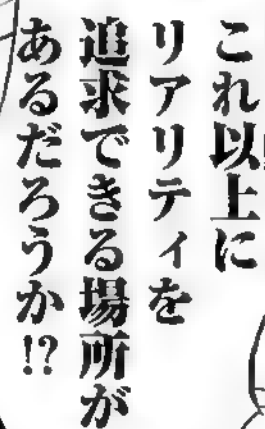 これ以上に
リアリティを
追求できる場所が
あるだろうか!?